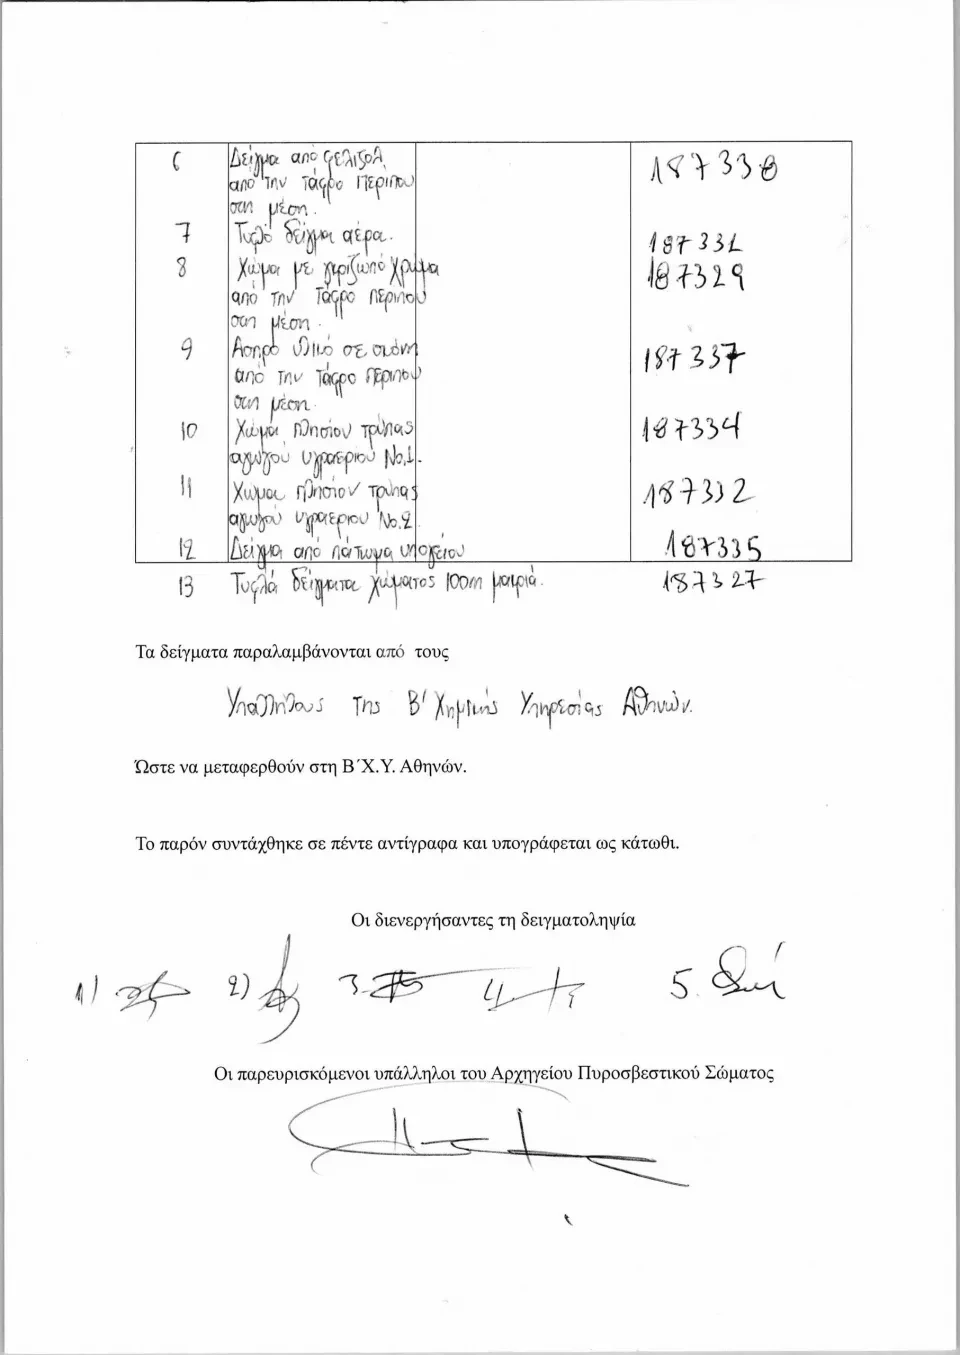 6 Δείγμα από φελιζόλ 187330
από την τάφρο περίπου
στη μέση.
7 Τυφλό δείγμα αέρα. 187331
8 Χώμα με γκριζωπό χρώμα 187329
από την τάφρο περίπου
στη μέση.
9 Άσπρο υλικό σε σκόνη 187337
από την τάφρο περίπου
στη μέση.
10 Χώμα πλησίον τρύπας 187334
αγωγού υγραερίου No.1.
11 Χώμα πλησίον τρύπας 187332
αγωγού υγραερίου No.2.
12 Δείγμα από πάτωμα υπογείου 187335
13 Τυφλά δείγματα χώματος 100m μακριά. 187327
Τα δείγματα παραλαμβάνονται από τους
Υπαλλήλους της Β' Χημικής Υπηρεσίας Αθηνών.
Ώστε να μεταφερθούν στη Β΄Χ.Υ. Αθηνών.
Το παρόν συντάχθηκε σε πέντε αντίγραφα και υπογράφεται ως κάτωθι.
Οι διενεργήσαντες τη δειγματοληψία
1) 2) 3. 4. 5.
Οι παρευρισκόμενοι υπάλληλοι του Αρχηγείου Πυροσβεστικού Σώματος